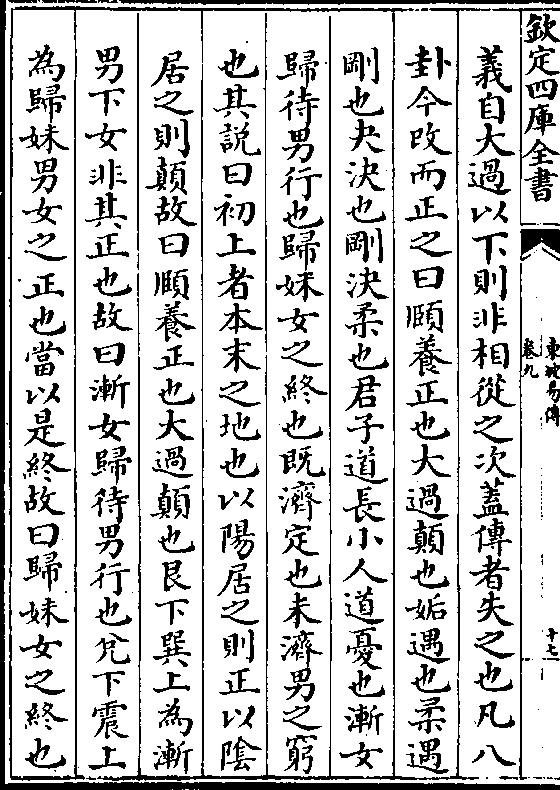 欽定四庫全書
東坡易傳
卷九
十七
義自大過以下則非相從之次蓋傳者失之也凡八
卦今改而正之曰頤養正也大過顛也姤遇也柔遇
剛也夬決也剛決柔也君子道長小人道憂也漸女
歸待男行也歸妹女之終也既濟定也未濟男之窮
也其説曰初上者本末之地也以陽居之則正以陰
居之則顛故曰頤養正也大過顛也艮下巽上為漸
男下女非其正也故曰漸女歸待男行也兌下震上
為歸妹男女之正也當以是終故曰歸妹女之終也